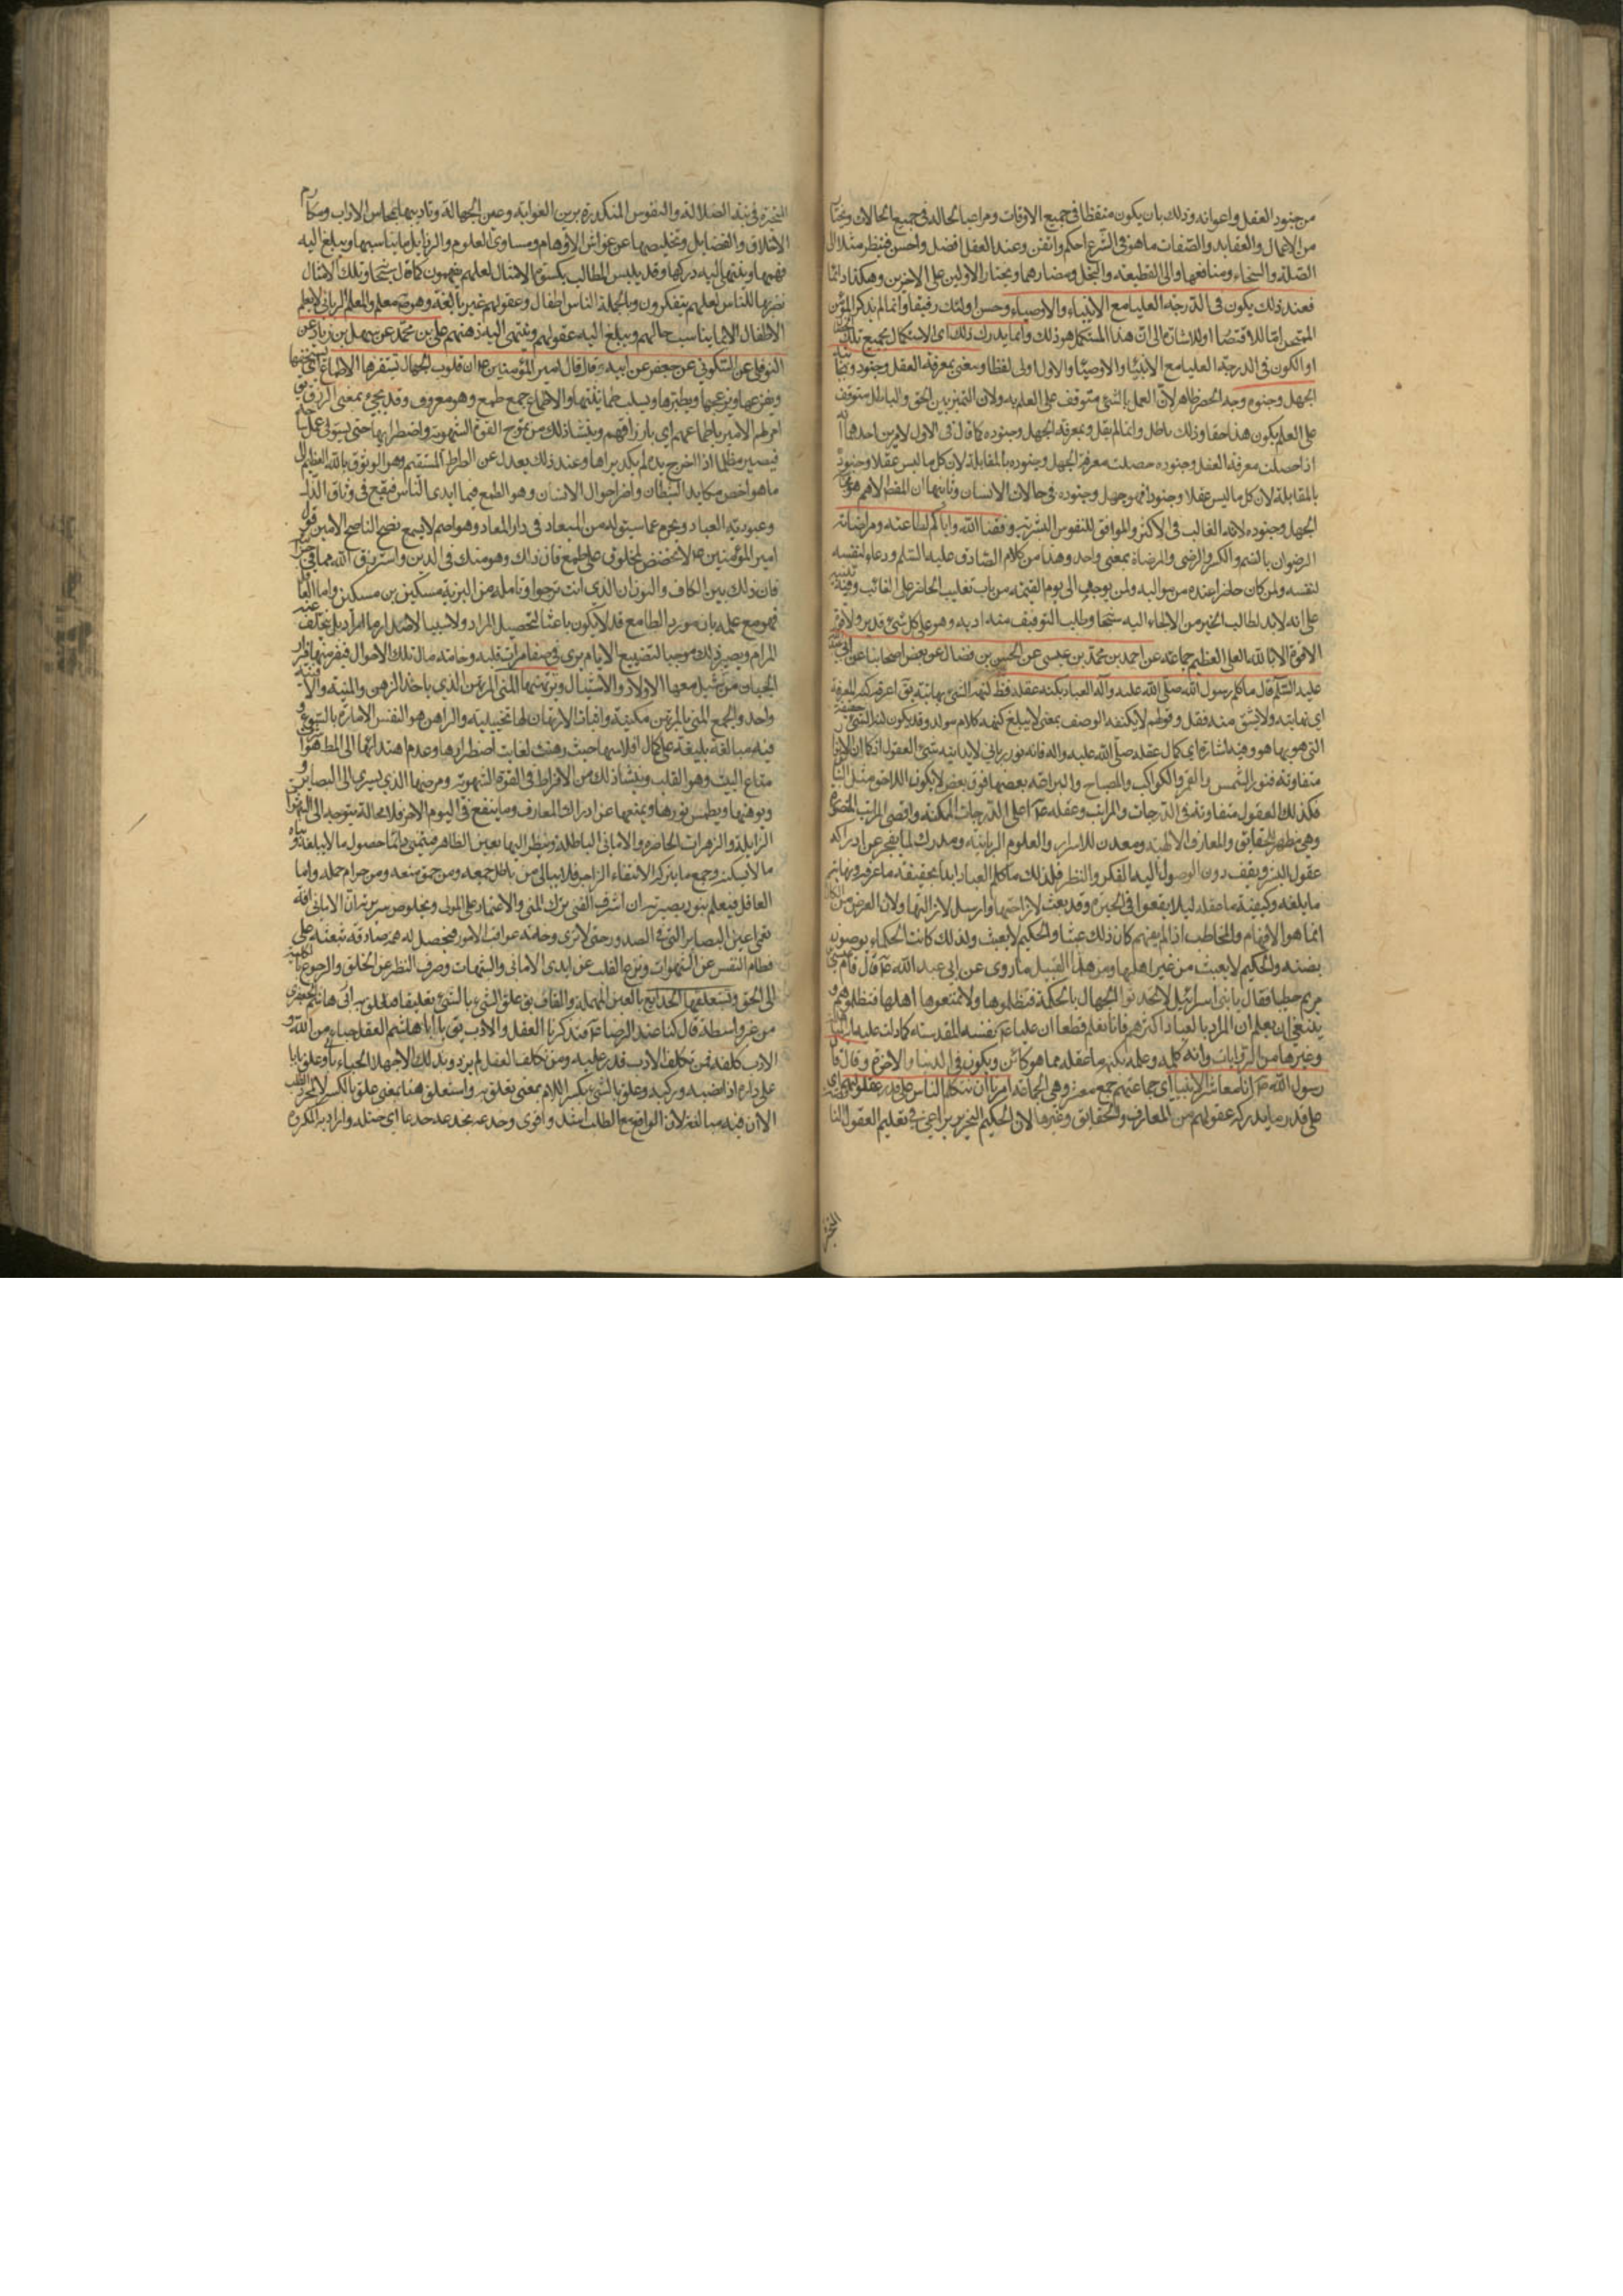 من جنود العقل واعوانه وذلك بان يكون متيقظا في جميع الاوقات ومراعيا لحاله في جميع الحالات ويختار
من الاعمال والعقايد والصفات ما هو في الشرع احكم واتقن وعند العقل افضل واحسن فينظر مثلا الى
الصلة والسخاء ومنافعها والى القطيعة والبخل ومضارهما ويختار الاولين على الاخرين وهكذا دائما
فعند ذلك يكون في الدرجة العليا مع الانبياء والاوصياء وحسن اولئك رفيقا وانما لم يذكر المؤمن
الممتحن اما للاقتصار او للاشارة الى ان هذا المستكمل هو ذلك وانما يدرك ذلك اى الاستكمال بجميع تلك الجنود
او الكون في الدرجة العليا مع الانبياء والاوصياء والاول اولى لفظا ومعنى بمعرفة العقل وجنوده وبمجانبة
الجهل وجنوده وجه الحصر ظاهر لان العمل بالشئ متوقف على العلم به ولان التميز بين الحق والباطل متوقف
على العلم بكون هذا حقا وذلك باطل وانما لم يقل وبمعرفة الجهل وجنوده كما قال في الاول لامرين احدهما انه
اذا حصلت معرفة العقل وجنوده حصلت معرفة الجهل وجنوده بالمقابلة لان كل ما ليس عقلا وجنوده
بالمقابلة لان كل ما ليس عقلا وجنودا فهو جهل وجنوده في حالات الانسان وثانيهما ان المقصد الاهم هو مجانبة
الجهل وجنوده لانه الغالب في الاكثر والموافق للنفوس البشرية وفقنا الله واياكم لطاعته ومرضاته
الرضوان بالضم والكسر والرضى والمرضاة بمعنى واحد وهذا من كلام الصادق عليه السلم ودعاء لنفسه
لنفسه ولمن كان حاضرا عنده من مواليه ولمن يوجد الى يوم القيمة من باب تغليب الحاضر على الغائب وفيه تنبيه
على انه لابد لطالب الخير من الالتجاء اليه سبحانه وطلب التوفيق منه اذ بيده وهو على كل شئ قدير ولا حول
ولا قوة الا بالله العلى العظيم جماعة عن احمد بن محمد بن عيسى عن الحسن بن فضال عن بعض اصحابنا عن ابي عبد الله
عليه السلم قال ما كلم رسول الله صلى الله عليه وآله العباد بكنه عقله قط كنه الشئ نهايته يق اعرفه كنه المعرفة
اى نهايته ولا يشتق منه فعل وقولهم لا يكتنهه الوصف بمعنى لا يبلغ كنهه كلام مولد وقد يكون كنه الشئ حقيقته
التى هو بها هو وفيه اشارة الى كمال عقله صلى الله عليه واله فانه نور رباني لا يدانيه شئ من العقول كما ان الانوار
متفاوتة فنور الشمس والقمر والكواكب والمصباح والبراعة بعضها فوق بعض لا يكون اللاحق مثل السابق
فكذلك العقول متفاوتة في الدرجات والمراتب وعقله ع في اعلى الدرجات الممكنة واقصى المراتب
وهي مظهر الحقايق والمعارف الالهية ومعدن للاسرار والعلوم الربانية ومدرك لما يعجز عن ادراكه
عقول البشر ويقف دون الوصول اليه الفكر والنظر فلذلك ما كلم العباد ابدا بحقيقة ما عرفه ونهاية
ما بلغه وكيفية ما عقله ليلا يقعوا في الحيرة وقد بعث لازاحتها وارسل لازالتها ولان الغرض من الكلام
انما هو الافهام والمخاطب اذا لم يفهم كان ذلك عبثا والحكيم لا يعبث ولذلك كانت الحكماء يوصون
بضنه والحكيم لا يعبث من غير اهلها ومن هذا القبيل ما روى عن ابي عبد الله ع قال قام عيسى بن
مريم خطيبا فقال يا بني اسرائيل لا تحدثوا الجهال بالحكمة فتظلموها ولا تمنعوها اهلها فتظلموهم و
ينبغي ان يعلم ان المراد بالعباد اكثرهم فانا نعلم قطعا ان عليا ع نفسه المقدسة كما دلت عليه
وغيرها من الروايات وانه كلمه وعلمه بكنه ما عقله مما هو كائن ويكون في الدنيا والاخرة وقال قال
رسول الله ص انا معاشر الانبياء اى جماعتهم جمع معشر وهي الجماعة امرنا ان نكلم الناس على قدر عقولهم اى
على قدر ما يدركه عقولهم من المعارف والحقايق وغيرها لان الحكيم النحرير يراعي في تعليم العقول
المتحيرة في تيه الضلالة والنفوس المنكدرة برين الغواية وعين الجهالة وتاديبها بمحاسن الاداب ومكارم
الاخلاق والفضايل وتخليصها عن غواشي الاوهام ومساوي العلوم والرذايل ما يناسبها ويبلغ اليه
فهمها وينتهي اليه دركها وقد يلبس المطالب بكسوة الامثال لعلهم يفهمون كما قال سبحانه وتلك الامثال
نضربها للناس لعلهم يتفكرون وبالجملة الناس اطفال وعقولهم غير بالغة وهو ص معلم والمعلم الرباني لا يعلم
الاطفال الا بما يناسب حالهم ويبلغ اليه عقولهم وينتهي اليه ذهنهم علي بن محمد عن سهل بن زياد عن
النوفلي عن السكوني عن جعفر عن ابيه ع قال قال امير المؤمنين ع ان قلوب الجهال تستفزها الاطماع اى تستخفها
ويفزعها ويزعجها ويطيرها ويسلب طمانينتها والاطماع جمع طمع وهو معروف وقد يجيء بمعنى الرزق يق
امر لهم الامير باطماعهم اى بارزاقهم وينشأ ذلك من تموج القوة الشهوية واضطرابها حتى يستولي على
فيصير مظلما اذا اخرج يده لم يكد يراها وعند ذلك يعدل عن الطراط المستقيم وهو الوثوق بالله العظيم الى
ما هو اخص مكايد الشيطان واضر احوال الانسان وهو الطمع فيما ايدى الناس فيقع في وثاق الذل
وعبودية العباد ويحرم عما سيتولد من الميعاد في دار المعاد وهو اصم لا يسمع نصح الناصح الامين قول
امير المؤمنين ع لا تخضعن لمخلوق على طمع فان ذاك وهو منك في الدين واسترزق الله مما في خزائنه
فان ذلك بين الكاف والنون ان الذي انت ترجوا وتامله من البرية مسكين بن مسكين واما العاقل
فهو مع علمه بان مورد الطامع قد لا يكون باعثا لتحصيل المراد ولا سببا لاصدار ما اراد بل يتخلف عنه
المرام ويصير ذلك موجبا لتضييع الايام يرى في صفا مرات قلبه وخامة مال تلك الاحوال فيفر منها فرار
الجبان من شبل معها الاولاد والاشبال وترتهنها المنى المرتهن الذي ياخذ الرهن والمنية والامنية
واحد والجمع المنى بالمرتهن مكنية واثبات الارتهان لها تخييلية والراهن هو النفس الامارة بالسوء و
فيه مبالغة بليغة على كمال افلاسها حيث رهنت لغاية اضطرارها وعدم اهتدائها الى المطلوب
متاع البيت وهو القلب وينشأ ذلك من الافراط في القوة الشهوية ومرضها الذي يسرى الى البصاير و
ويوهنها ويطمس نورها ويمنعها عن ادراك المعارف وما ينفع في اليوم الاخر فلا محالة يتوجه الى
الزايلة والزهرات الحاضرة والاماني الباطلة وينظر اليها بعين الظاهر فيتمنى دائما حصول ما لا يبلغه وبناء
ما لا يسكنه وجمع ما يتركه الانتقاء الزاجر فلا يبالي من باطل جمعه ومن حق منعه ومن حرام حمله واما
العاقل فيعلم بنور بصيرته ان اشرف الغنى ترك المنى والاعتماد على المولى وبخلوص سريرته ان الاماني افة
تعمي اعين البصاير التي في الصدور حتى لا ترى وخامة عواقب الامور فيحصل له همة صادقة تبعثه على
فطام النفس عن الشهوات ونزع القلب عن ايدى الاماني والشبهات وصرف النظر عن الخلق والرجوع بالكلية
الى الحق وتستعلقها الخدايع بالعين المهملة والقاف يق علق الشئ بالشئ تعليقا فتعلق به ابي هاشم الجعفري
من غير واسطة قال كنا عند الرضا ع فتذاكرنا العقل والادب يق يا ابا هاشم العقل حباء من الله و
الادب كلفة فمن تكلف الادب قدر عليه ومن تكلف العقل لم يزدد بذلك الا جهلا الحباء
على داره اذا نصبه وركبه وعلق بالشئ بكسر اللام بمعنى تعلق به واستعلق هنا بمعنى علق بالكسر
الا ان فيه مبالغة لان الواقع مع الطلب اشد واقوى وخدعه يخدعه خدعا اى ختله واراد به المكروه